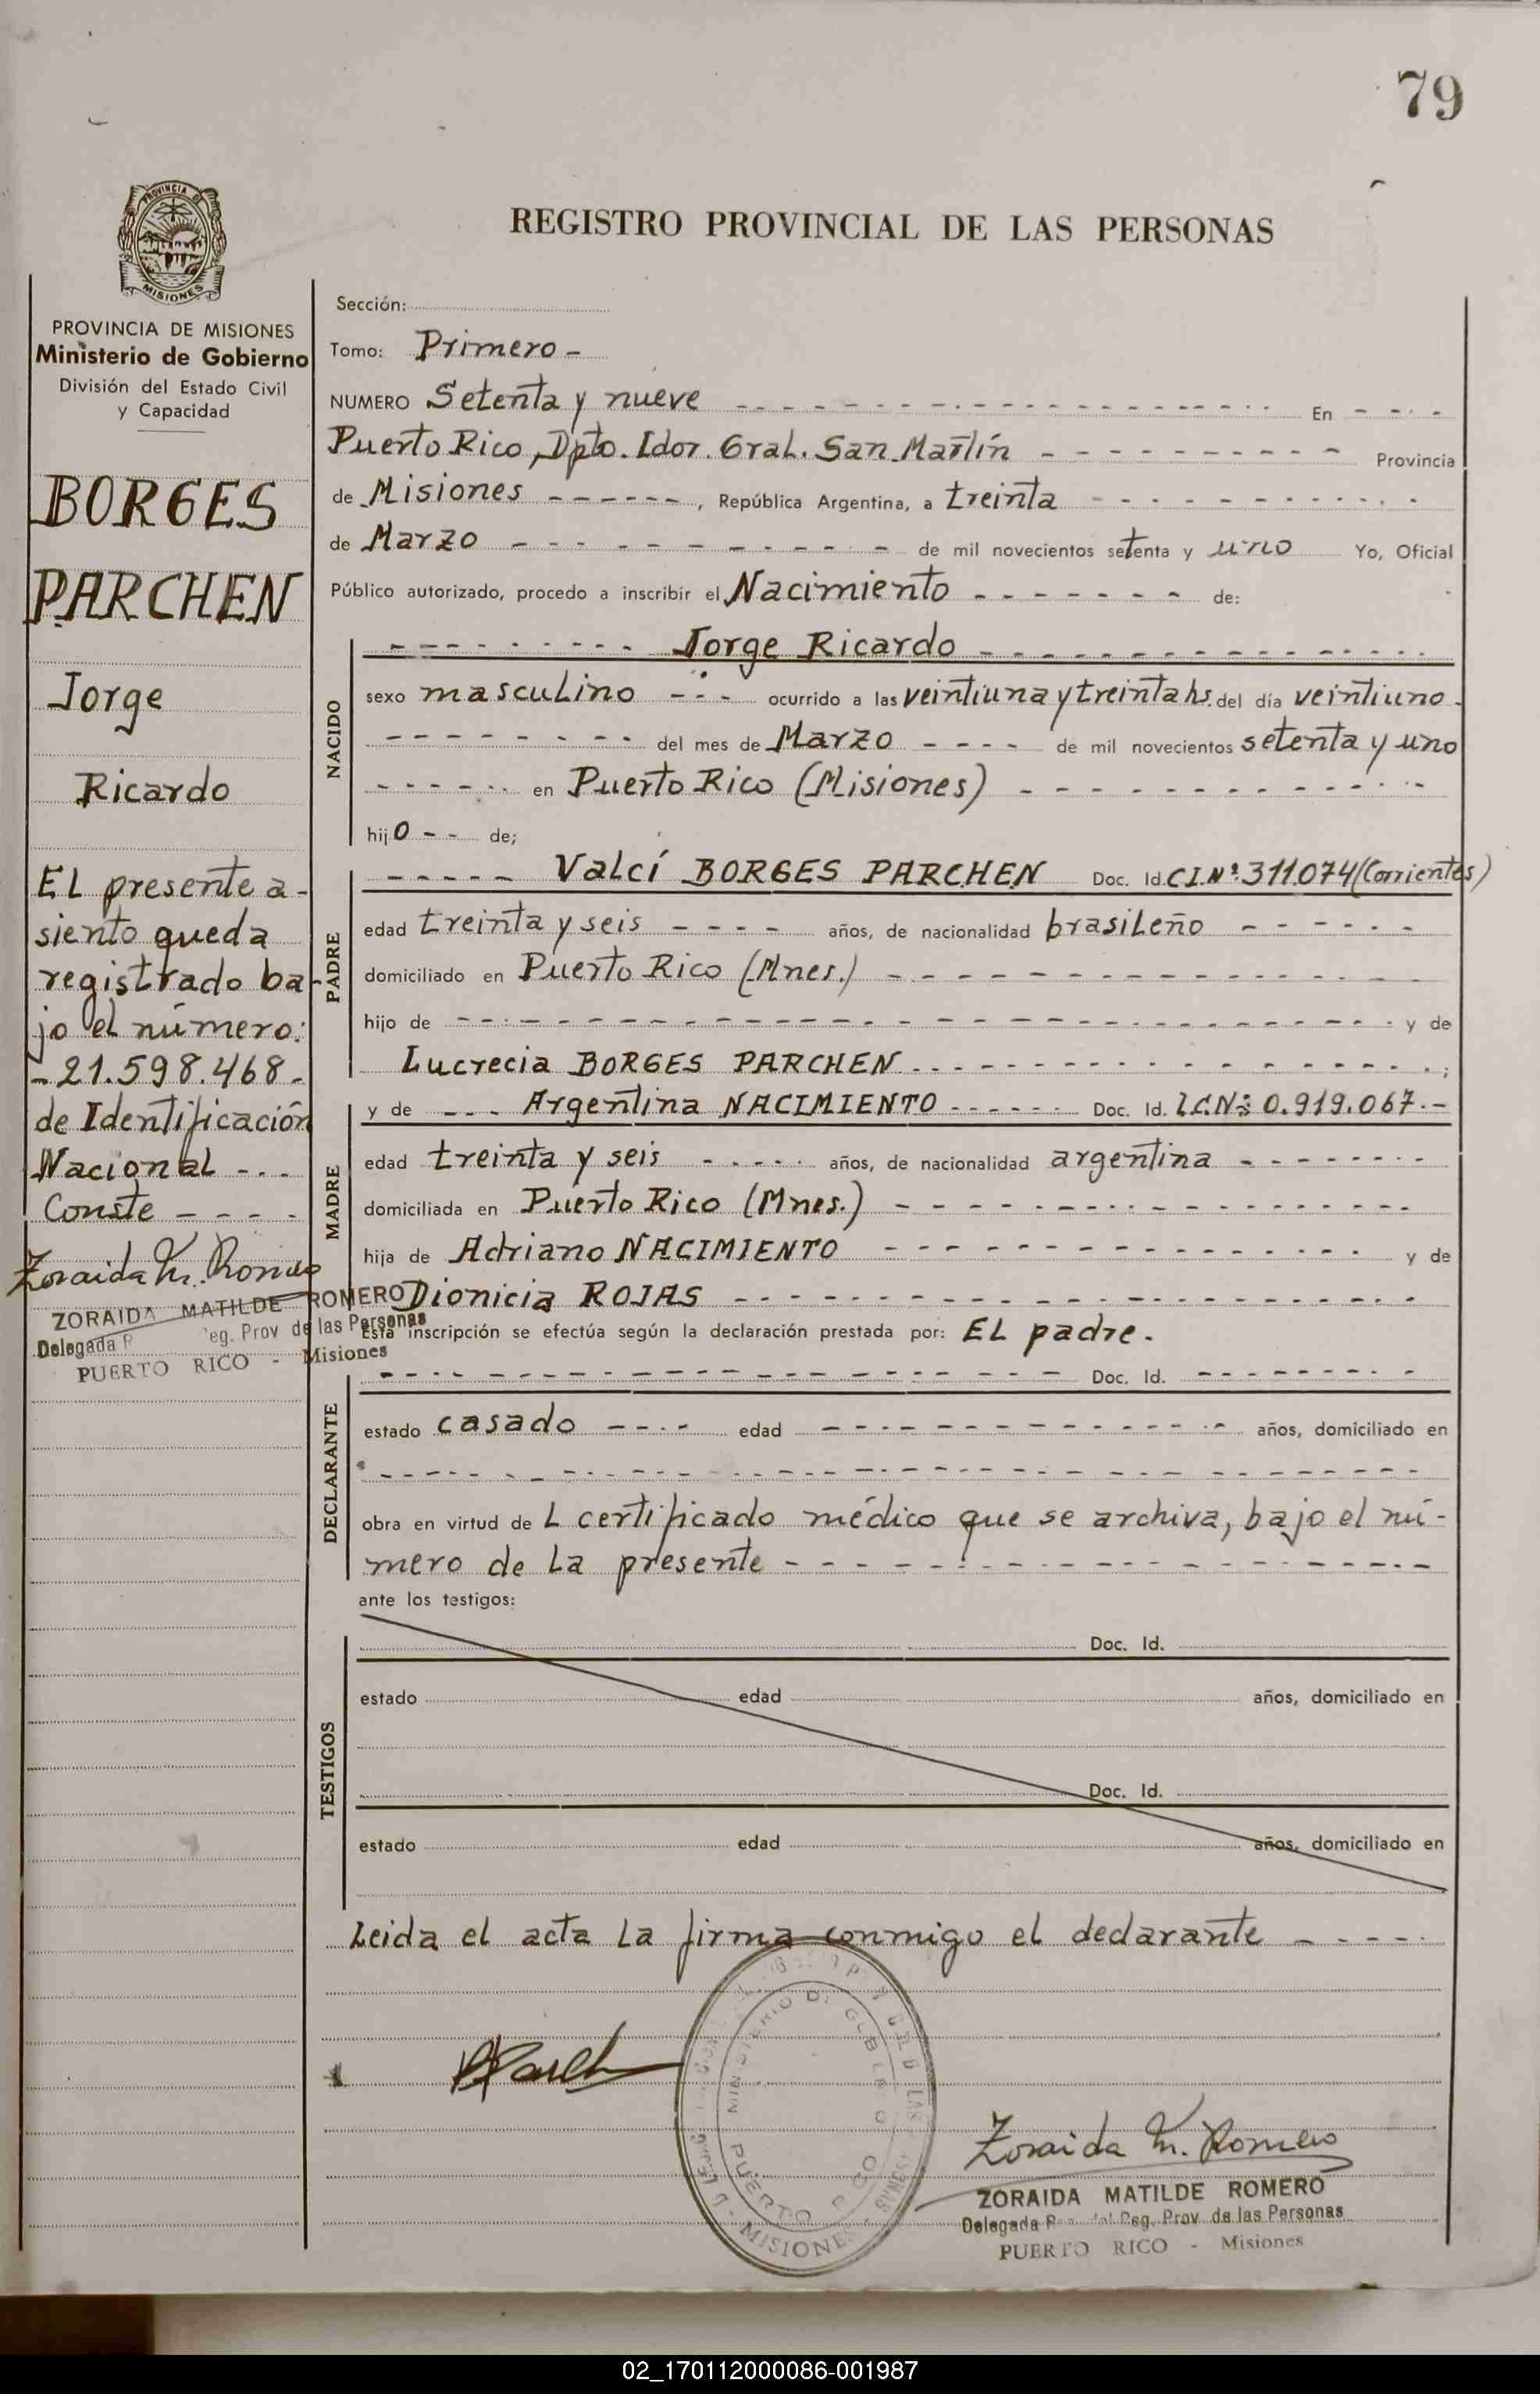 79
PROVINCIA DE
MISIONES
REGISTRO PROVINCIAL DE LAS PERSONAS
PROVINCIA DE MISIONES
Ministerio de Gobierno
División del Estado Civil
y Capacidad
BORGES
PARCHEN
Jorge
Ricardo
EL presente a-
siento queda
registrado ba-
jo el número:
-21.598.468-
de Identificación
Nacional - - -
Conste - - - -
Zoraida M. Romero
ZORAIDA MATILDE ROMERO
Delegada Reg. Prov de las Personas
PUERTO RICO - Misiones
Sección:
Tomo: Primero -
NUMERO Setenta y nueve - - - En - - -
Puerto Rico, Dpto. Ldor. Gral. San Martín - - - Provincia
de Misiones - - - , República Argentina, a treinta - - -
de Marzo - - - de mil novecientos setenta y uno Yo, Oficial
Público autorizado, procedo a inscribir el Nacimiento - - - de:
NACIDO
- - - Jorge Ricardo - - -
sexo masculino - - - ocurrido a las veintiuna y treinta hs. del día veintiuno -
- - - del mes de Marzo - - - de mil novecientos setenta y uno
- - - en Puerto Rico (Misiones) - - -
hijo - - de;
PADRE
- - - Valcí BORGES PARCHEN Doc. Id. C.I.Nº: 311.074 (Corrientes)
edad treinta y seis - - - años, de nacionalidad brasileño - - -
domiciliado en Puerto Rico (Mnes.) - - -
hijo de - - - y de
Lucrecia BORGES PARCHEN - - - ;
MADRE
y de - - - Argentina NACIMIENTO - - - Doc. Id. L.C.Nº: 0.919.067.-
edad treinta y seis - - - años, de nacionalidad argentina - - -
domiciliada en Puerto Rico (Mnes.) - - -
hija de Adriano NACIMIENTO - - - y de
Dionicia ROJAS - - -
Esta inscripción se efectúa según la declaración prestada por: EL padre.
DECLARANTE
- - - Doc. Id. - - -
estado casado - - - edad - - - años, domiciliado en
- - -
obra en virtud de L certificado médico que se archiva, bajo el nú-
mero de la presente - - -
ante los testigos:
TESTIGOS
Doc. Id.
estado edad años, domiciliado en
Doc. Id.
estado edad años, domiciliado en
Leida el acta la firma conmigo el declarante - - -
MINISTERIO DE GOBIERNO
PUERTO RICO
MISIONES
Zoraida M. Romero
ZORAIDA MATILDE ROMERO
Delegada Reg. Prov. de las Personas
PUERTO RICO - Misiones
02_170112000086-001987